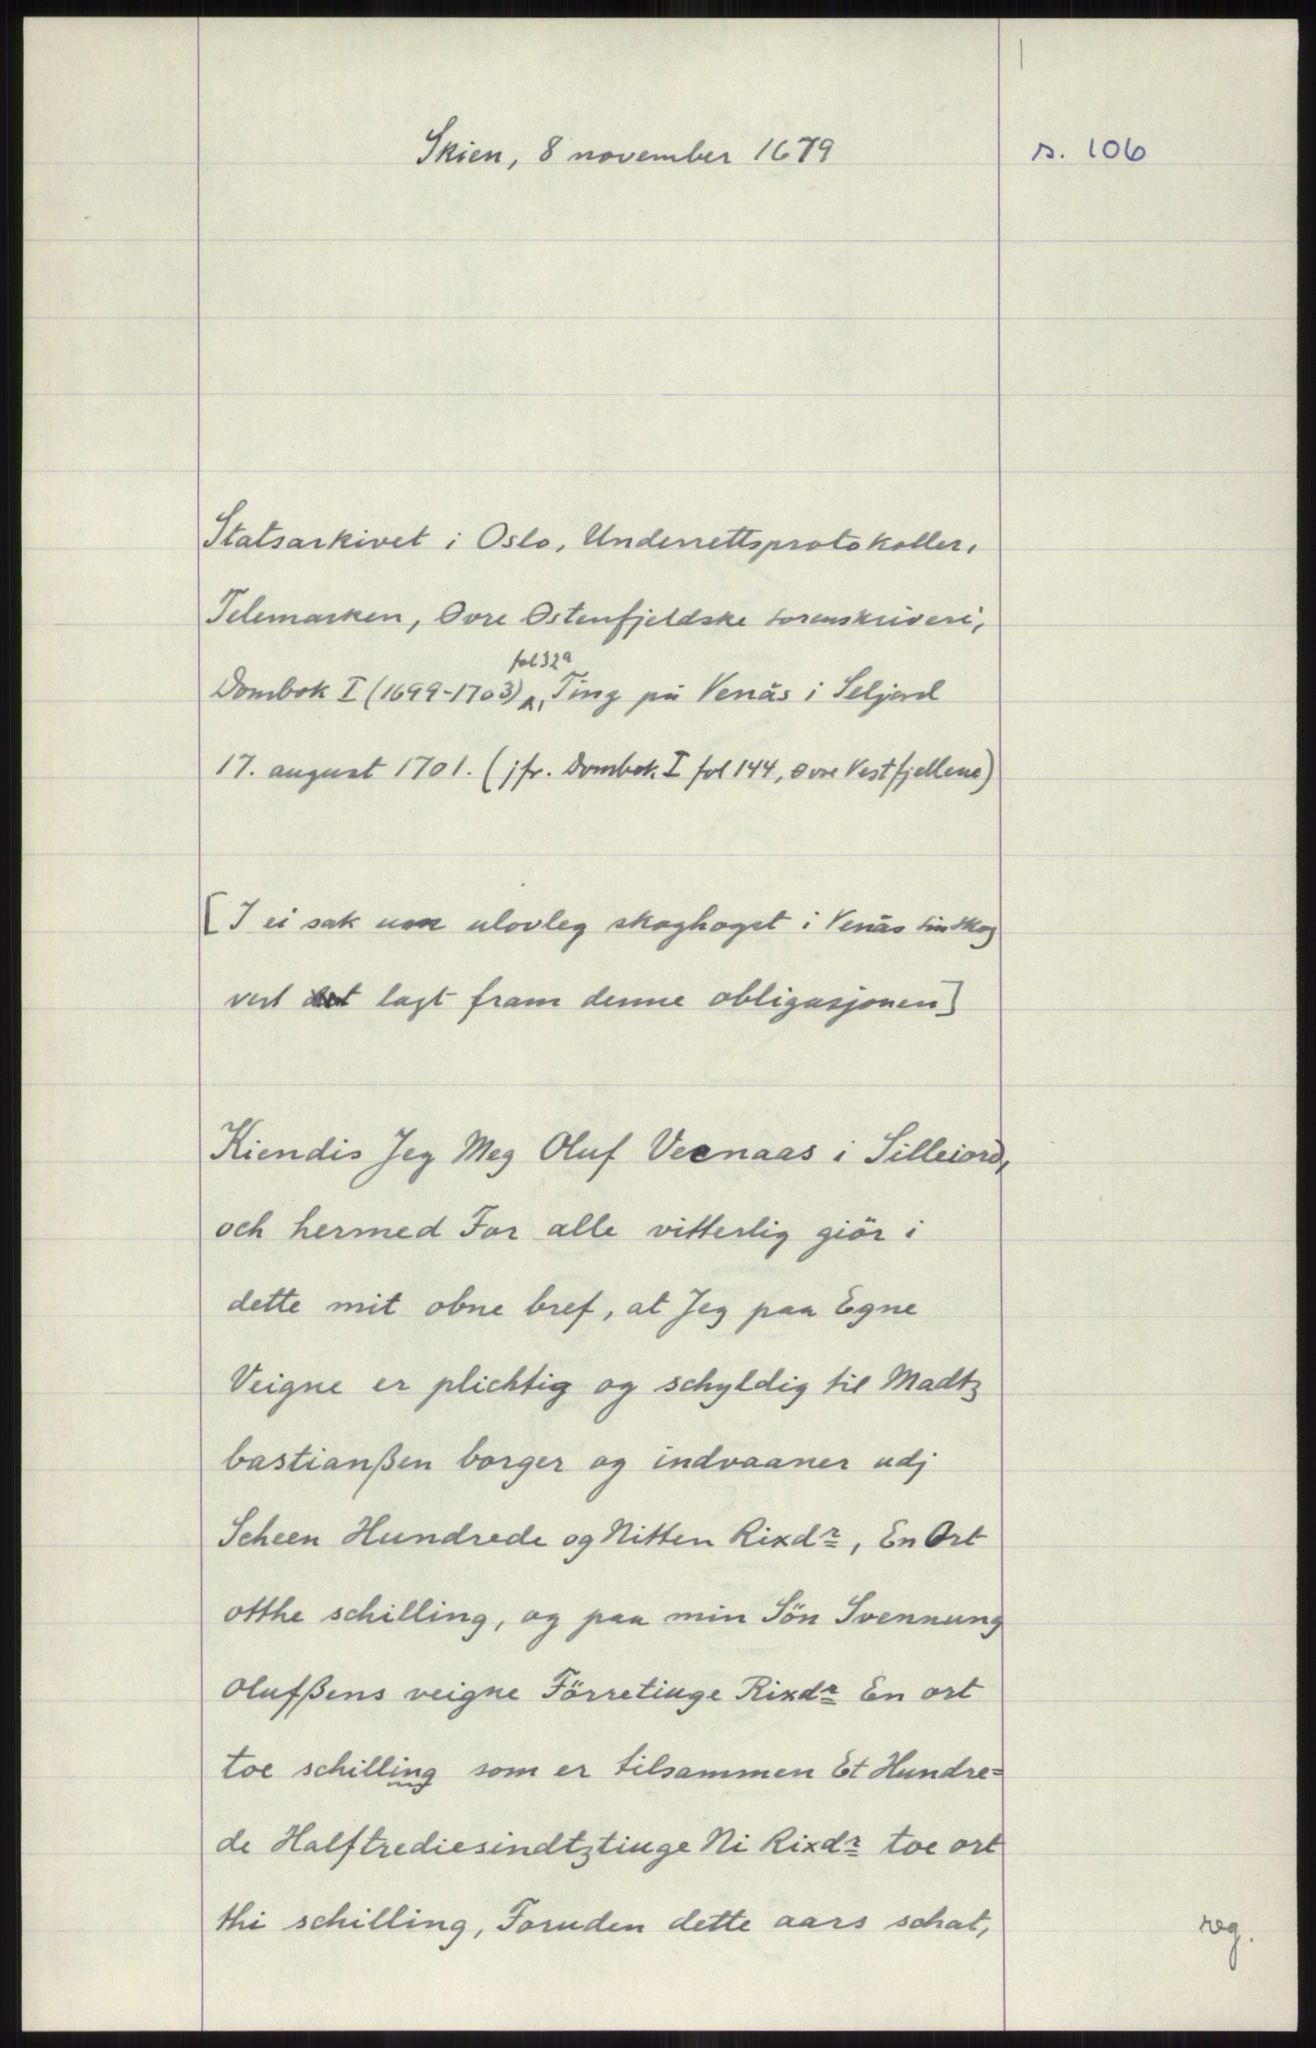 Skien, 8 november 1679
s. 106
Statsarkivet i Oslo, Underrettsprotokoller,
Telemarken, Øvre Østenfjeldske sorenskriveri,
fol 32a
Dombok I (1699-1703), Ting på Venås i Seljord
17. august 1701. (jfr. Dombok I fol 144, øvre Vestfjellene)
[I ei sak um ulovleg skoghogst i Venås sin skog
vert lagt fram denne obligasjonen]
Kiendis Jeg Meg Oluf Veenaas i Silleiord,
och hermed For alle vitterlig giör i
dette mit obne bref, at Jeg paa Egne
Veigne er plichtig og schyldig til Madtz
bastianßen borger og indvaaner udj
Scheen Hundrede og Nitten Rixdr, En Ort
otthe schilling, og paa min Sön Svennung
Olufßens veigne Förretiuge Rixdr En ort
toe schilling som er tilsammen Et Hundre=
de Halftrediesindtztiuge Ni Rixdr toe ort
thi schilling, Foruden dette aars schat,
reg.